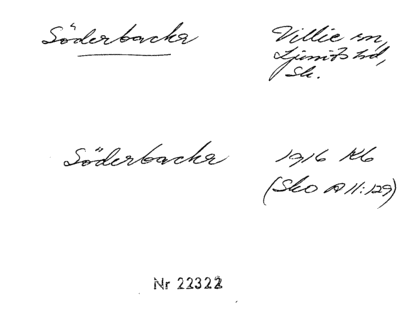 Söderbacka Villie sn,
Ljunits hd,
Sk.
Söderbacka 1916 Kb
(Sko A II:129)
Nr 22322